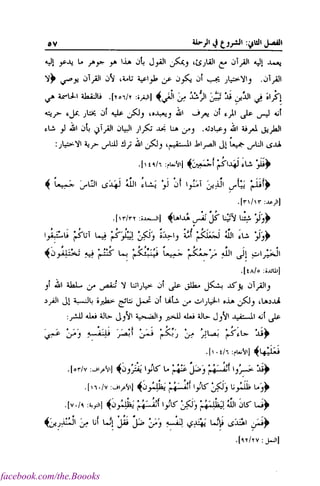 الفصل الثاني: الشروع في الرحلة ٥٧
يعمد إليه القرآن مع القارئ، ويمكن القول بأن هذا هو جوهر ما يدعو إليه
القرآن. والاختيار يجب أن يكون عن طواعية تامة، لأن القرآن يوصي ﴿لَا
إِكْرَاهَ فِي الدِّينِ قَد تَّبَيَّنَ الرُّشْدُ مِنَ الْغَيِّ﴾ [البقرة: ٢٥٦/٢]. فالنقطة الحاسمة هي
أنه ليس على المرء أن يعرف الله ويعبده، ولكن عليه أن يختار بملء حريته
الطريق لمعرفة الله وعبادته. ومن هنا نجد تكرار البيان القرآني بأن الله لو شاء
لهدى الناس جميعاً إلى الصراط المستقيم، ولكن الله ترك للناس حرية الاختيار:
﴿فَلَوْ شَاءَ لَهَدَاكُمْ أَجْمَعِينَ﴾ [الأنعام: ١٤٩/٦].
﴿أَفَلَمْ يَيْأَسِ الَّذِينَ آمَنُوا أَن لَّوْ يَشَاءُ اللَّهُ لَهَدَى النَّاسَ جَمِيعاً﴾
[الرعد: ٣١/١٣].
﴿وَلَوْ شِئْنَا لَآتَيْنَا كُلَّ نَفْسٍ هُدَاهَا﴾ [السجدة: ١٣/٣٢].
﴿وَلَوْ شَاءَ اللَّهُ لَجَعَلَكُمْ أُمَّةً وَاحِدَةً وَلَكِن لِّيَبْلُوَكُمْ فِيمَا آتَاكُمْ فَاسْتَبِقُوا
الْخَيْرَاتِ إِلَى اللَّهِ مَرْجِعُكُمْ جَمِيعاً فَيُنَبِّئُكُم بِمَا كُنتُمْ فِيهِ تَخْتَلِفُونَ﴾
[المائدة: ٤٨/٥].
والقرآن يؤكد بشكل مطلق على أن خياراتنا لا تُنقص من سلطة الله أو
تهددها، ولكن هذه الخيارات من شأنها أن تحمل نتائج خطيرة بالنسبة إلى الفرد
على أنه المستفيد الأول حالة فعله للخير والضحية الأولى حالة فعله للشر:
﴿قَدْ جَاءَكُم بَصَائِرُ مِن رَّبِّكُمْ فَمَنْ أَبْصَرَ فَلِنَفْسِهِ وَمَنْ عَمِيَ
فَعَلَيْهَا﴾ [الأنعام: ١٠٤/٦].
﴿قَدْ خَسِرُوا أَنفُسَهُمْ وَضَلَّ عَنْهُم مَّا كَانُوا يَفْتَرُونَ﴾ [الأعراف: ٥٣/٧].
﴿وَمَا ظَلَمُونَا وَلَكِن كَانُوا أَنفُسَهُمْ يَظْلِمُونَ﴾ [الأعراف: ١٦٠/٧].
﴿فَمَا كَانَ اللَّهُ لِيَظْلِمَهُمْ وَلَكِن كَانُوا أَنفُسَهُمْ يَظْلِمُونَ﴾ [التوبة: ٧٠/٩].
﴿فَمَنِ اهْتَدَى فَإِنَّمَا يَهْتَدِي لِنَفْسِهِ وَمَن ضَلَّ فَقُلْ إِنَّمَا أَنَا مِنَ الْمُنذِرِينَ﴾
[النمل: ٩٢/٢٧].
facebook.com/the.Boooks